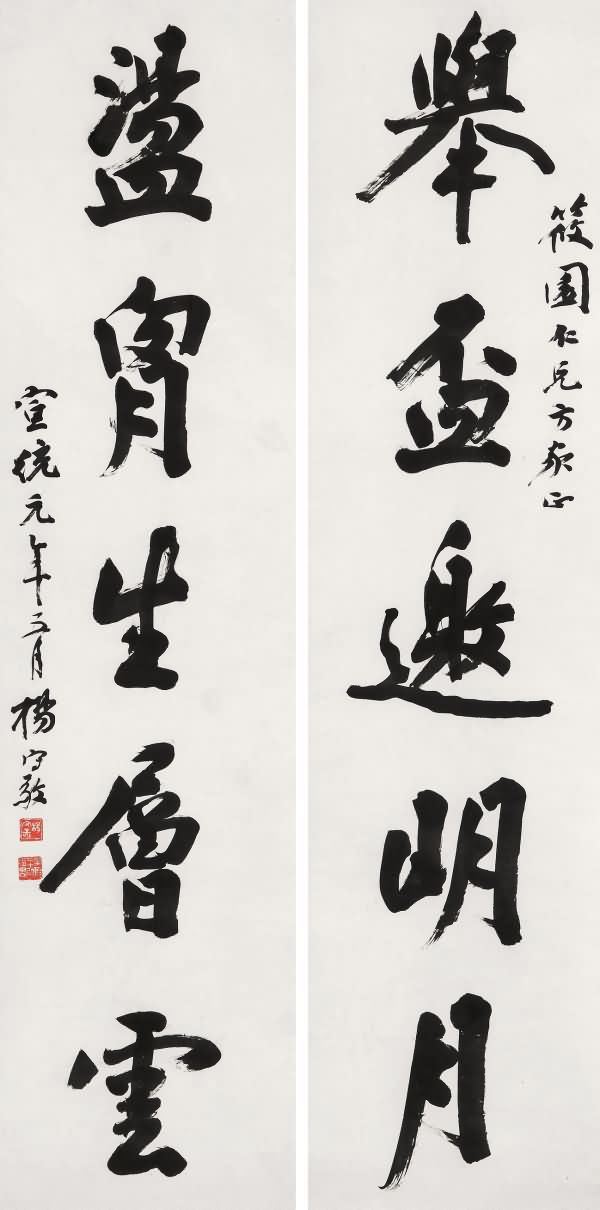 筱園仁兄方家正
舉盃邀明月
盪胷生層雲
宣統元年 月楊守敬